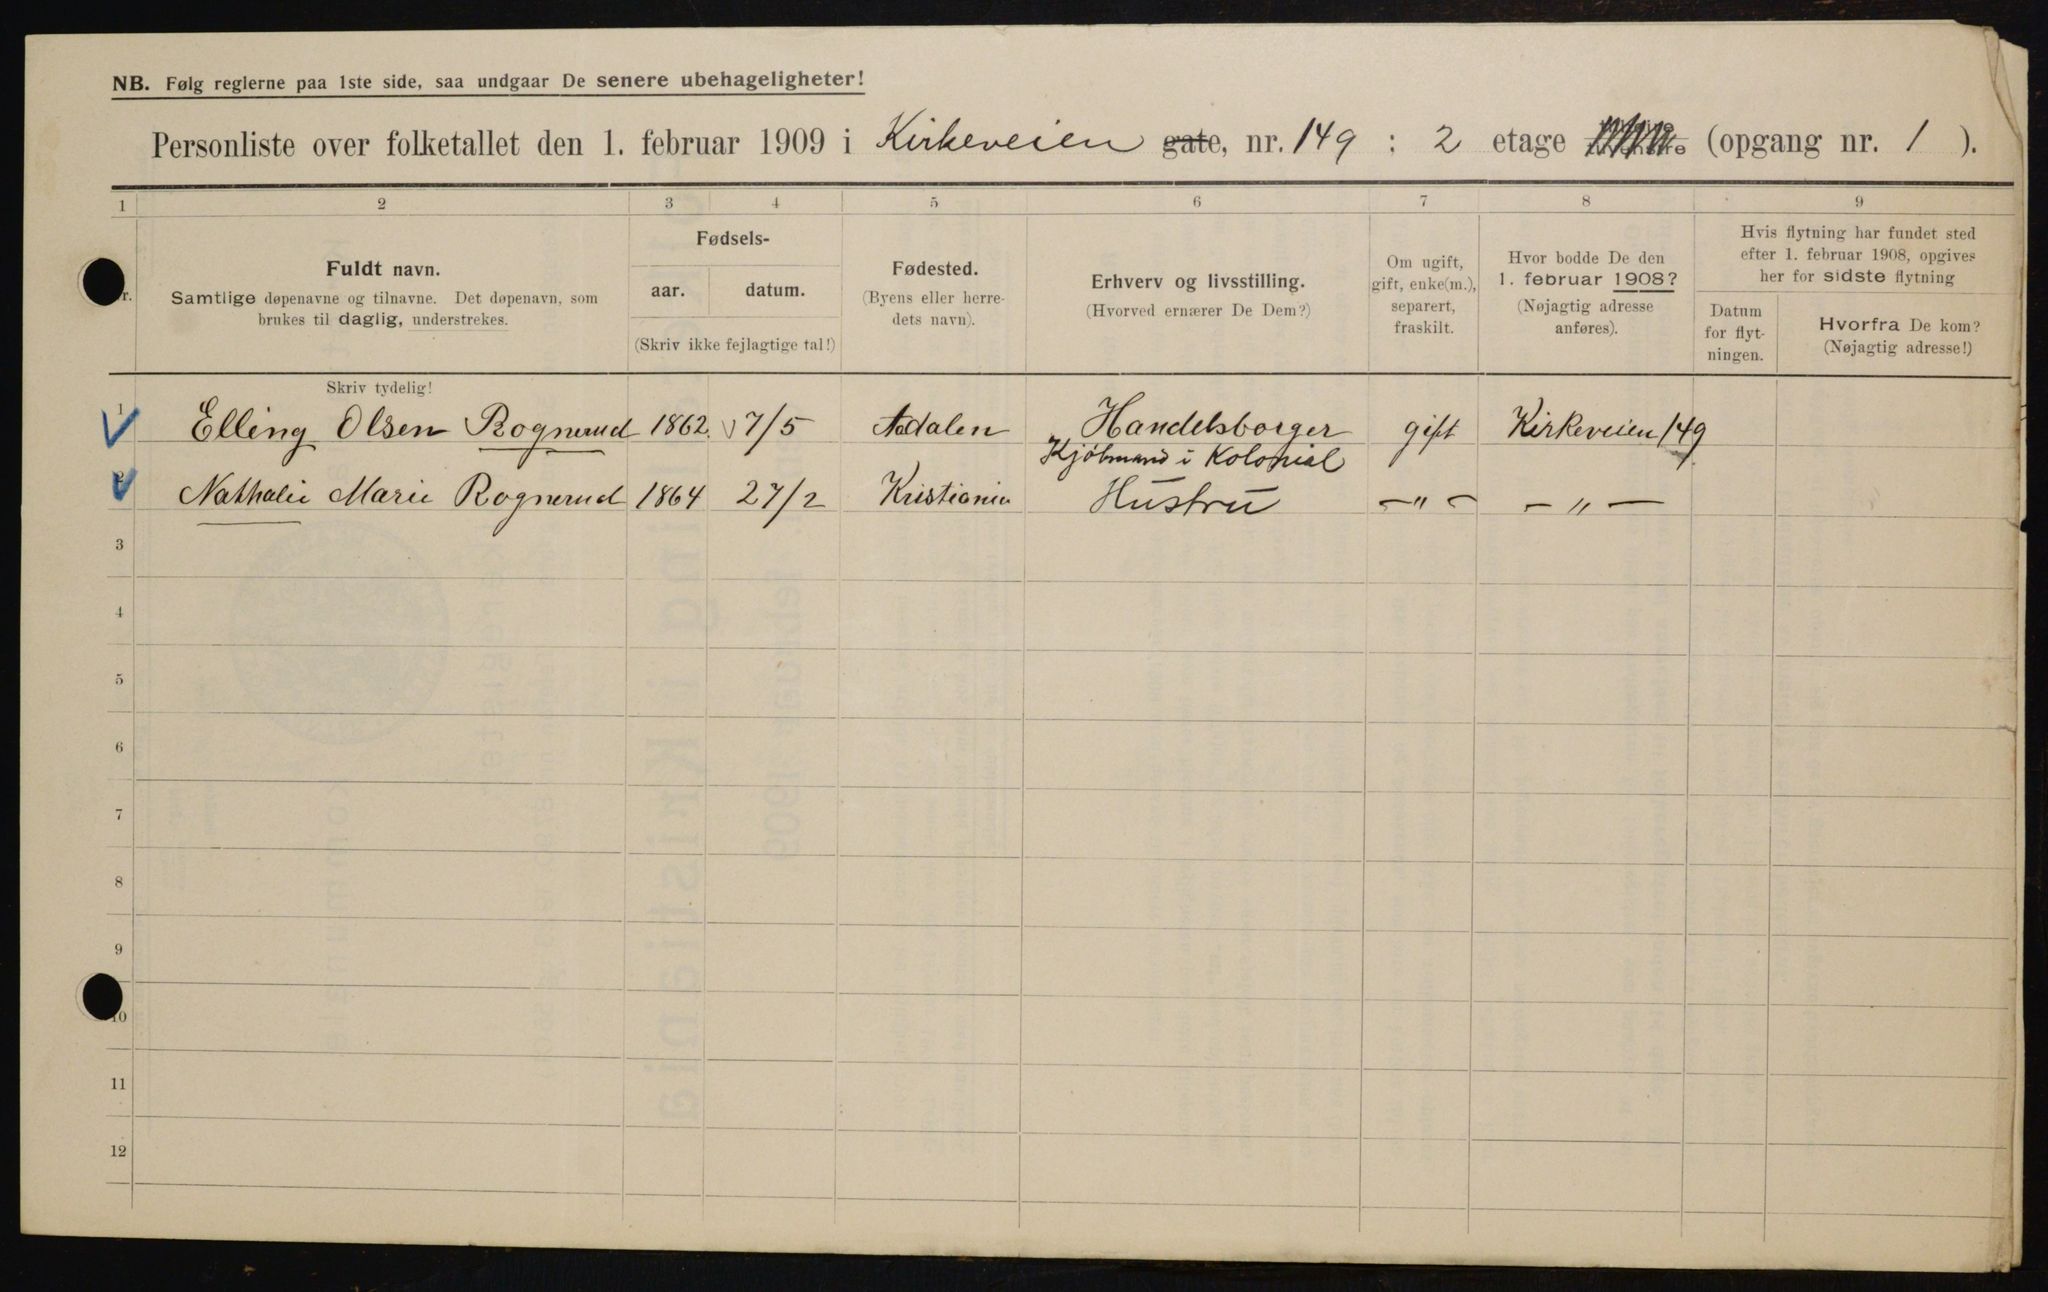 NB. Følg reglerne paa 1ste side, saa undgaar De senere ubehageligheter!
Personliste over folketallet den 1. februar 1909 i Kirkeveien gate, nr. 149 : 2 etage (opgang nr. 1 ).
1 2 3 4 5 6 7 8 9
Nr.
Fuldt navn.
Samtlige døpenavne og tilnavne. Det døpenavn, som
brukes til daglig, understrekes.
Fødsels-
aar. datum.
(Skriv ikke fejlagtige tal!)
Fødested.
(Byens eller herre-
dets navn).
Erhverv og livsstilling.
(Hvorved ernærer De Dem?)
Om ugift,
gift, enke(m.),
separert,
fraskilt.
Hvor bodde De den
1. februar 1908?
(Nøjagtig adresse
anføres).
Hvis flytning har fundet sted
efter 1. februar 1908, opgives
her for sidste flytning
Datum
for flyt-
ningen.
Hvorfra De kom?
(Nøjagtig adresse!)
Skriv tydelig!
1 Elling Olsen Rognerud 1862. 7/5 Aadalen Handelsborger gift Kirkeveien 149
Kjøbmand i Kolonial
2 Nathalie Marie Rognerud 1864 27/2 Kristiania Hustru — „ — — „ —
3
4
5
6
7
8
9
10
11
12